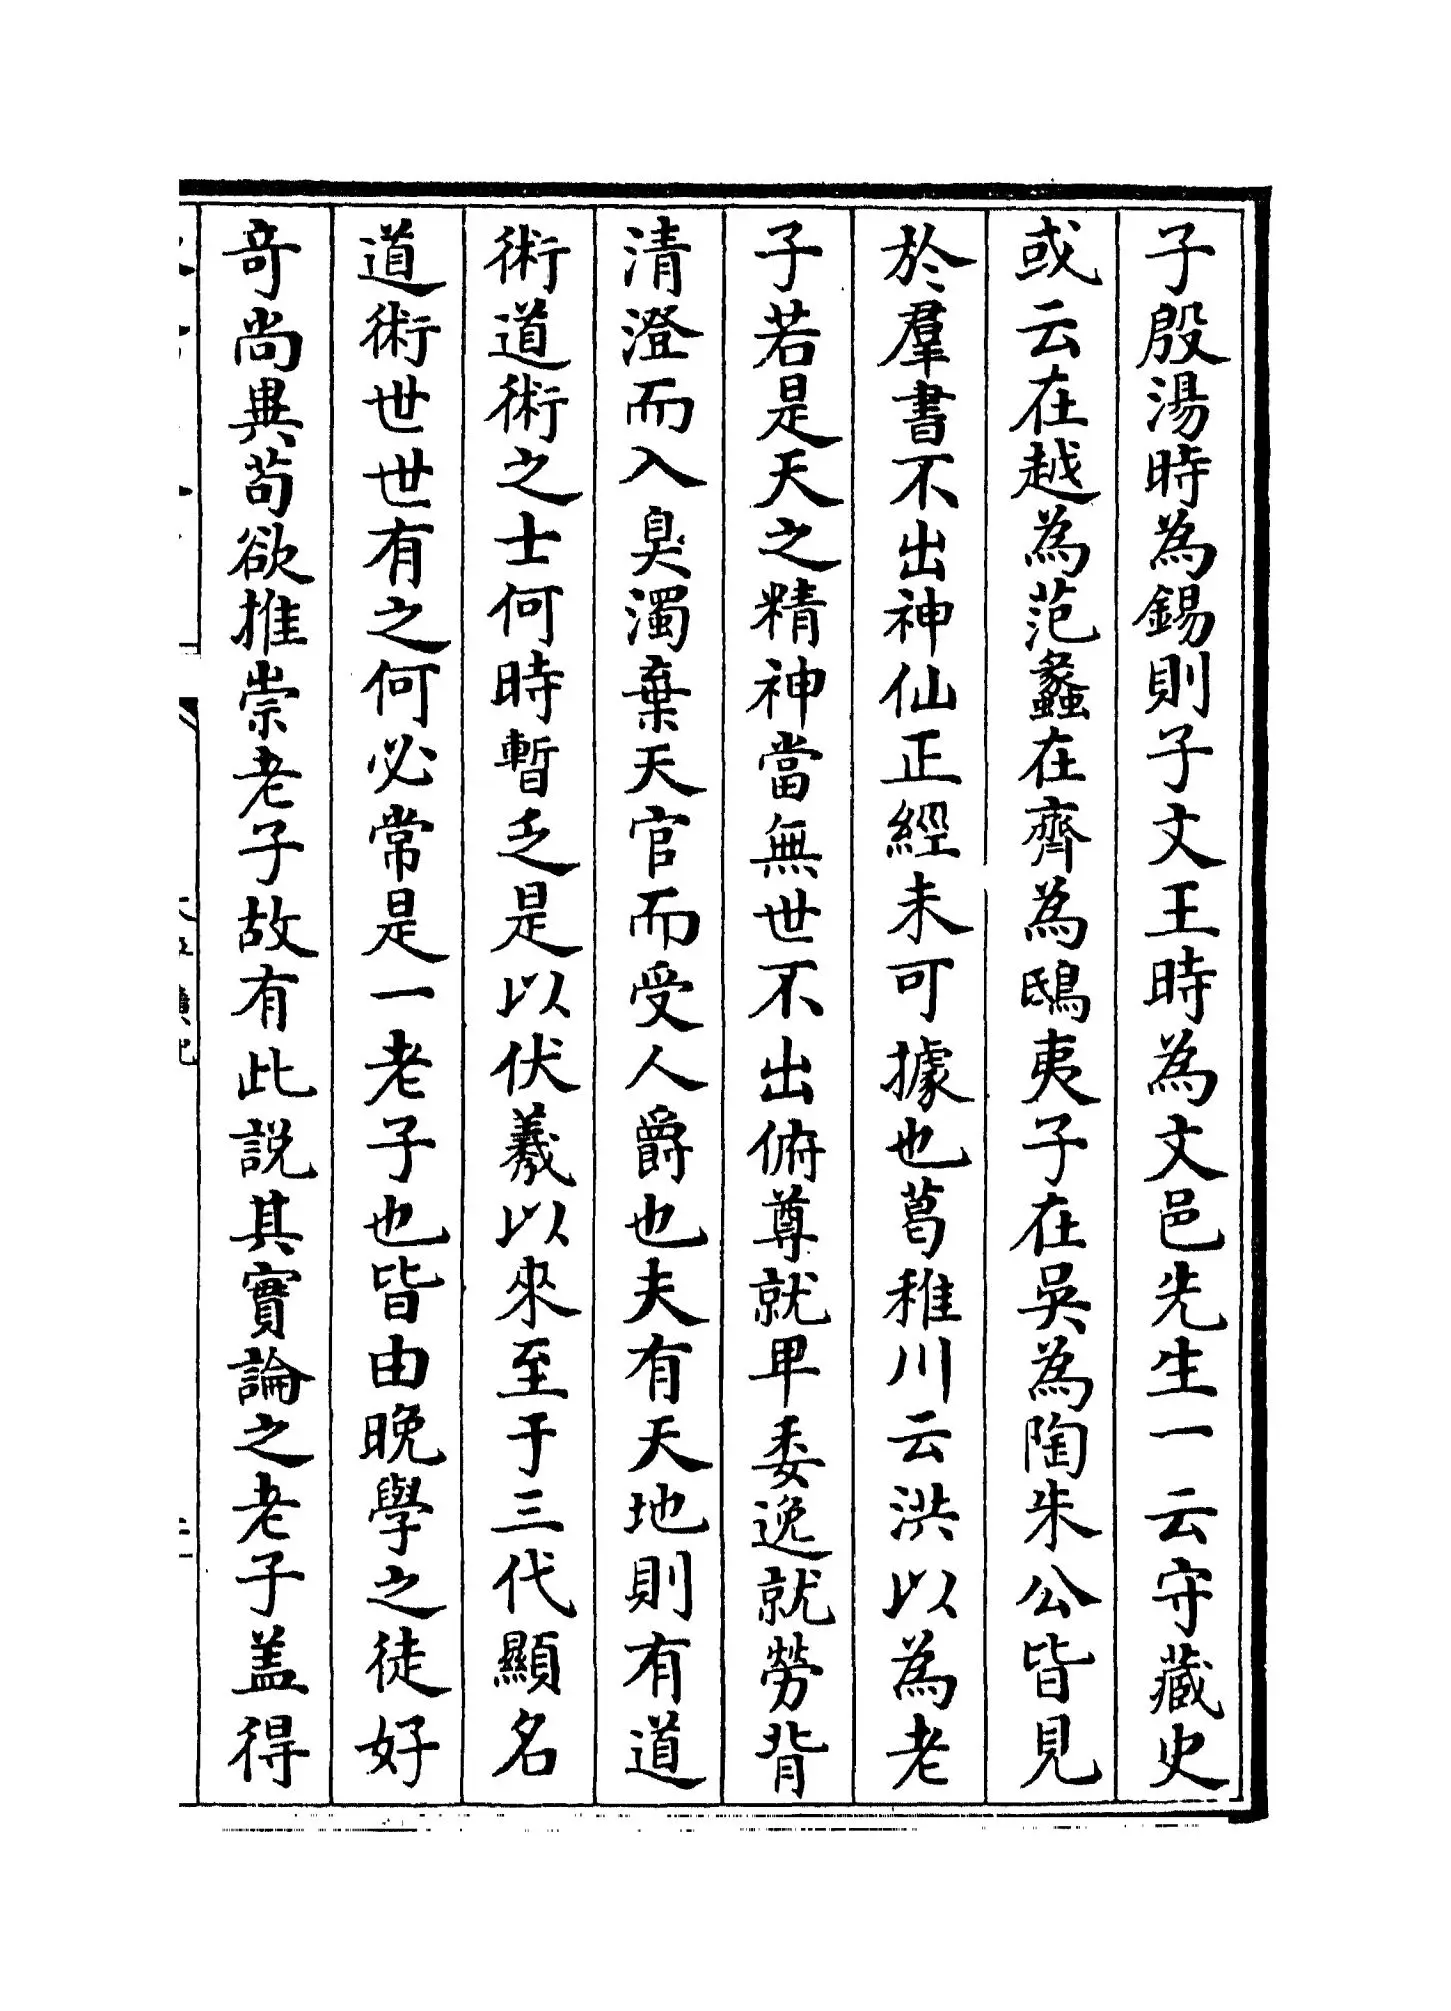 子殷湯時為錫則子文王時為文邑先生一云守藏史
或云在越為范蠡在齊為鴟夷子在吳為陶朱公皆見
於羣書不出神仙正經未可據也葛稚川云洪以為老
子若是天之精神當無世不出俯尊就卑委逸就勞背
清澄而入臭濁棄天官而受人爵也夫有天地則有道
術道術之士何時暫乏是以伏羲以來至于三代顯名
道術世世有之何必常是一老子也皆由晚學之徒好
竒尚異茍欲推崇老子故有此說其實論之老子盖得